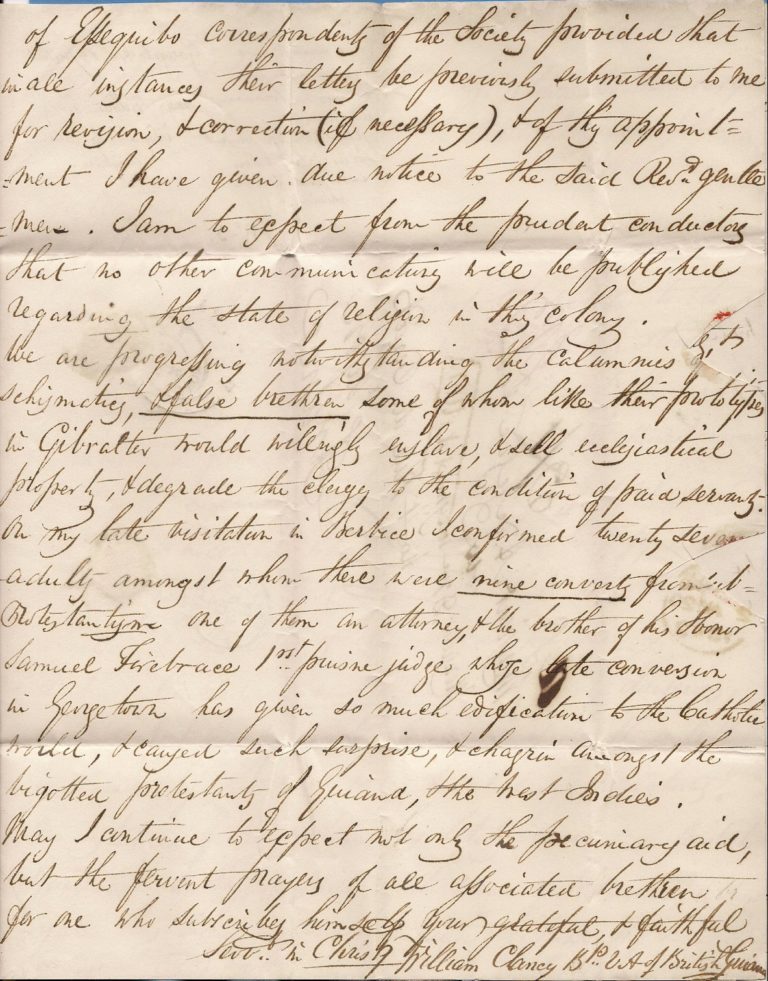 of Essequibo correspondents of the Society provided that
in all instances their letters be previously submitted to me
for revision, & correction (if necessary), & of this appoint=
=ment I have given due notice to the said Revd. gentle
=men. I am to expect from the prudent conductors
that no other communications will be published
regarding the state of religion in this colony.
We are progressing notwithstanding the calumnies of
schismatics, & false brethren some of whom like their prototypes
in Gibralter would willingly enslave, & sell ecclesiastical
property, & degrade the clergy to the condition of paid servants.
On my late visitation in Berbice I confirmed twenty seven
adults amongst whom there were nine converts from
Protestantism one of them an attorney, & the brother of his Honor
Samuel Firebrace 1rst puisne judge whose late conversion
in Georgetown has given so much edification to the Catholic
world, & caused such surprise, & chagrin amongst the
bigotted protestants of Guiana, & the West Indies.
May I continue to expect not only the pecuniary aid,
but the fervent prayers of all associated brethren
for one who subscribes himself your grateful, & faithful
Servt. in Christ William Clancy Bp. VA of British Guiana